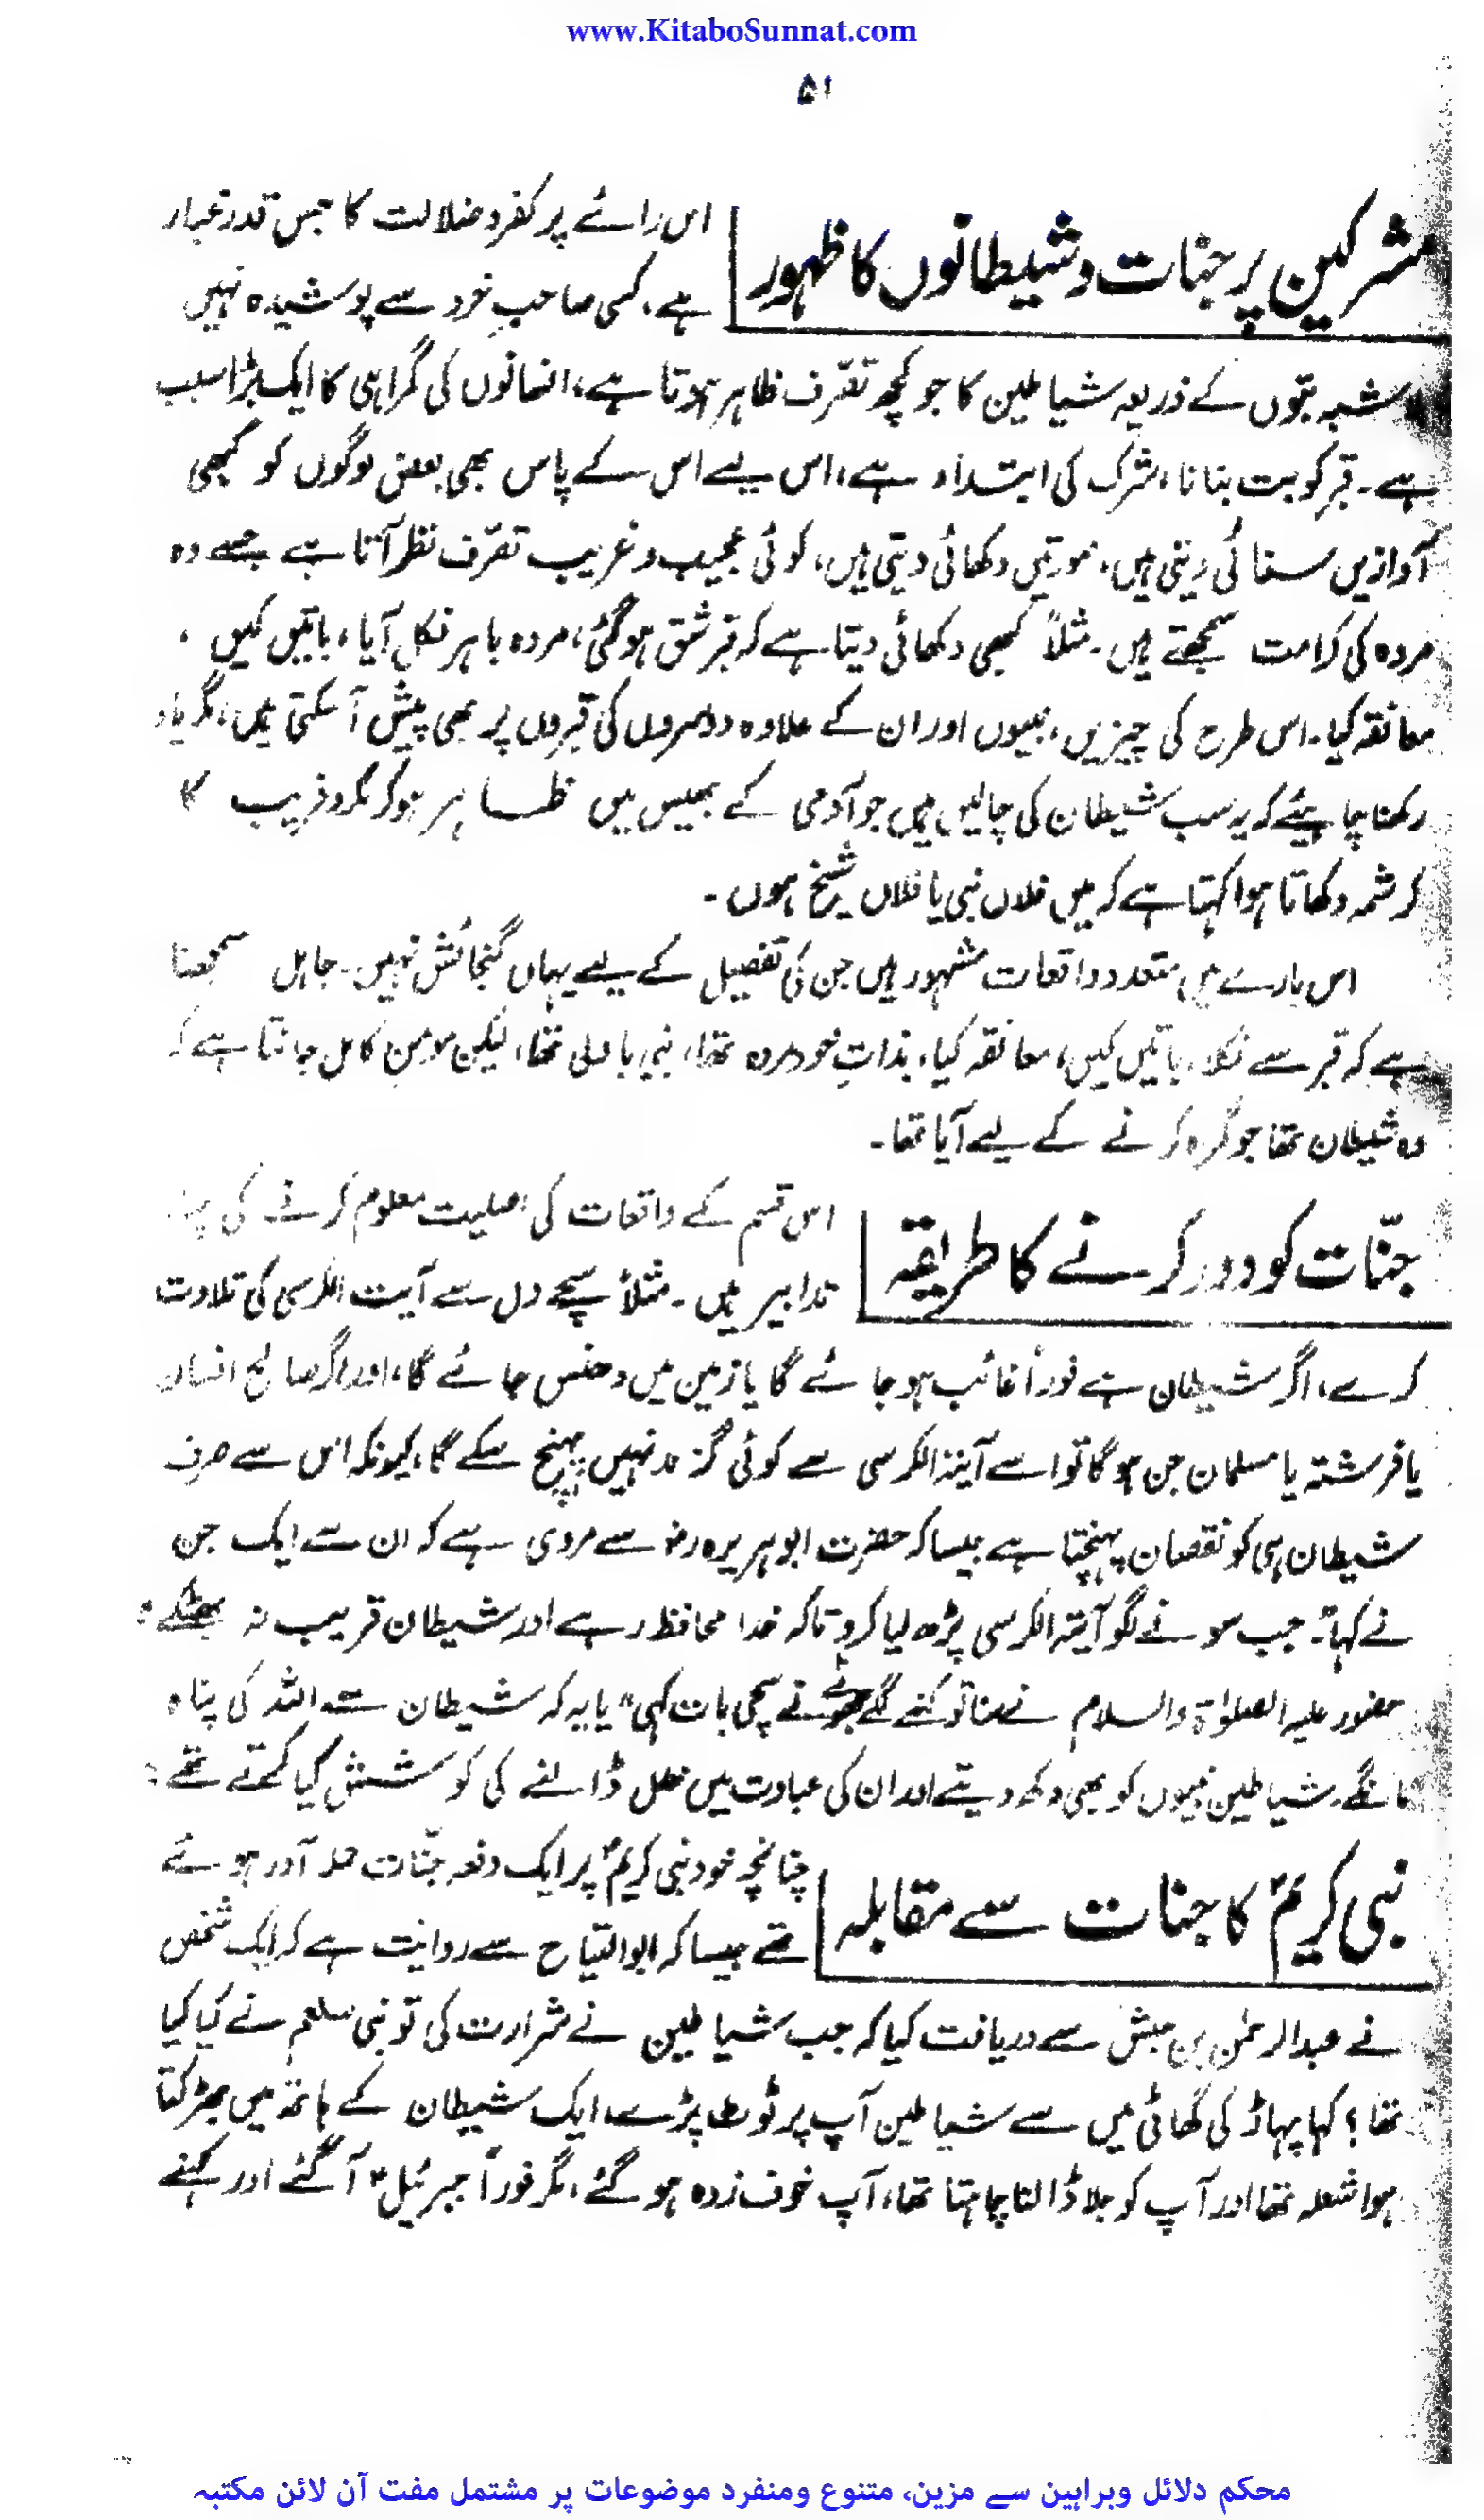 www.KitaboSunnat.com
۵۱
مشرکین پر جنات و شیطانوں کا ظہور
اس رائے پر کفر و ضلالت کا جس قدر غبار
ہے، کسی صاحبِ خرد سے پوشیدہ نہیں
شبہ بتوں کے ذریعہ شیاطین کا جو کچھ تصّرف ظاہر ہوتا ہے، انسانوں کی گمراہی کا ایک بڑا سبب
ہے۔ قبر کو بت بنانا، شرک کی ابتداء ہے، اس لیے اس کے پاس بھی بعض لوگوں کو کبھی
آوازیں سنائی دیتی ہیں، صورتیں دکھائی دیتی ہیں، کوئی عجیب و غریب تصرّف نظر آتا ہے جسے وہ
مردہ کی کرامت سمجھتے ہیں۔ مثلاً کبھی دکھائی دیتا ہے کہ قبر شق ہو گئی، مردہ باہر نکل آیا، باتیں کیں،
معانقہ کیا۔ اس طرح کی چیزیں، نبیوں اور ان کے علاوہ دوسروں کی قبروں پر بھی پیش آسکتی ہیں، مگر یاد
رکھنا چاہیئے کہ یہ سب شیطان کی چالیں ہیں جو آدمی کے بھیس میں ظاہر ہو کر مکر و فریب کا
کرشمہ دکھاتا ہوا کہتا ہے کہ میں فلاں نبی یا فلاں شیخ ہوں۔
اس بارے میں متعدد واقعات مشہور ہیں جن کی تفصیل کے لیے یہاں گنجائش نہیں۔ جاہل سمجھتا
ہے کہ قبر سے نکلا، باتیں کیں، معانقہ کیا، بذاتِ خود مردہ تھا، نبی یا ولی تھا، لیکن مومنِ کامل جانتا ہے کہ
وہ شیطان تھا جو گمراہ کرنے کے لیے آیا تھا۔
جنّات کو دور کرنے کا طریقہ
اس قسم کے واقعات کی اصلیت معلوم کرنے کی چند
تدابیر ہیں۔ مثلاً سچے دل سے آیت الکرسی کی تلاوت
کرے، اگر شیطان ہے فوراً غائب ہو جائے گا یا زمین میں دھنس جائے گا، اور اگر صالح انسان
یا فرشتہ یا مسلمان جن ہو گا تو اسے آیتہ الکرسی سے کوئی گزند نہیں پہنچ سکے گا، کیونکہ اس سے صرف
شیطان ہی کو نقصان پہنچتا ہے جیسا کہ حضرت ابو ہریرہ رضؓ سے مروی ہے کہ ان سے ایک جن
نے کہا: جب سونے لگو آیتہ الکرسی پڑھ لیا کرو تاکہ خدا محافظ رہے اور شیطان قریب نہ پھٹکے:
حضور علیہ الصلوٰۃ والسلام نے سنا تو کہنے لگے جھوٹے نے سچی بات کہی" یا یہ کہ شیطان سے اللہ کی پناہ
مانگے۔ شیاطین نبیوں کو بھی دکھ دیتے اور ان کی عبادت میں خلل ڈالنے کی کوشش کیا کرتے تھے:
نبی کریمؐ کا جنات سے مقابلہ
چنانچہ خود نبی کریمؐ پر ایک دفعہ جنّات حملہ آور ہوئے
تھے جیسا کہ ابو التیاح سے روایت ہے کہ ایک شخص
نے عبدالرحمٰن بن حبش سے دریافت کیا کہ جب شیاطین نے شرارت کی تو نبی صلعم نے کیا کیا
تھا؟ کہا پہاڑ کی گھاٹی میں سے شیاطین آپ پر ٹوٹ پڑے، ایک شیطان کے ہاتھ میں بھڑکتا
ہوا شعلہ تھا اور آپ کو جلا ڈالنا چاہتا تھا، آپ خوف زدہ ہو گئے، مگر فوراً جبرئیلؑ آ گئے اور کہنے
محکم دلائل وبراہین سے مزین، متنوع ومنفرد موضوعات پر مشتمل مفت آن لائن مکتبہ